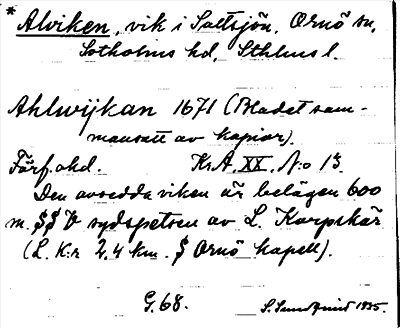 * Alviken, vik i Saltsjön, Ornö sn,
Sotholms hd, Sthlms l.
Ahlwijkan 1671 (Bladet sam-
mansatt av kopior).
Förf. okd. Kr.A. XX, N:o 13.
Den avsedda viken är belägen 600
m. SSV sydspetsen av L. Karpskär
(L. K:r 2,4 km. S Ornö kapell).
G. 68. S. Sundqvist 1935.